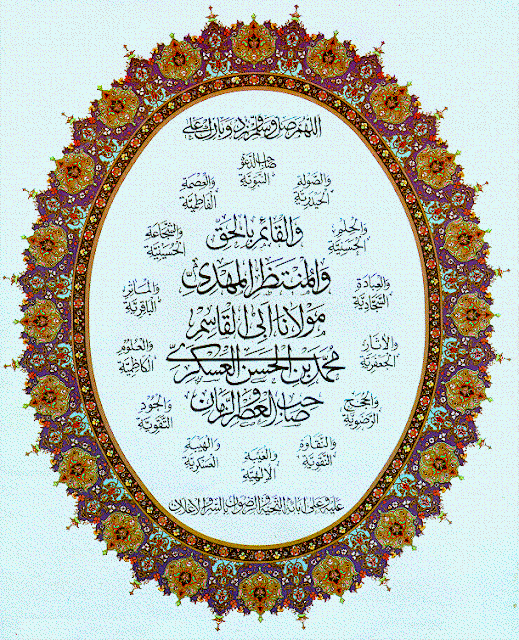 اللهم صل وسلم وزد وبارك على
صاحب الدعوة
النبوية
والصولة
الحيدرية
والعصمة
الفاطمية
والحلم
الحسنية
والشجاعة
الحسينية
والعبادة
السجادية
والمآثر
الباقرية
والآثار
الجعفرية
والعلوم
الكاظمية
والحجج
الرضوية
والجود
التقوية
والنقاوة
النقوية
والهيبة
العسكرية
والغيبة
الالهية
والقائم بالحق
والمنتظر المهدي
مولانا ابي القاسم
محمد بن الحسن العسكري
صاحب العصر والزمان
عليه وعلى آبائه التحية والرضوان بالسر والاعلان